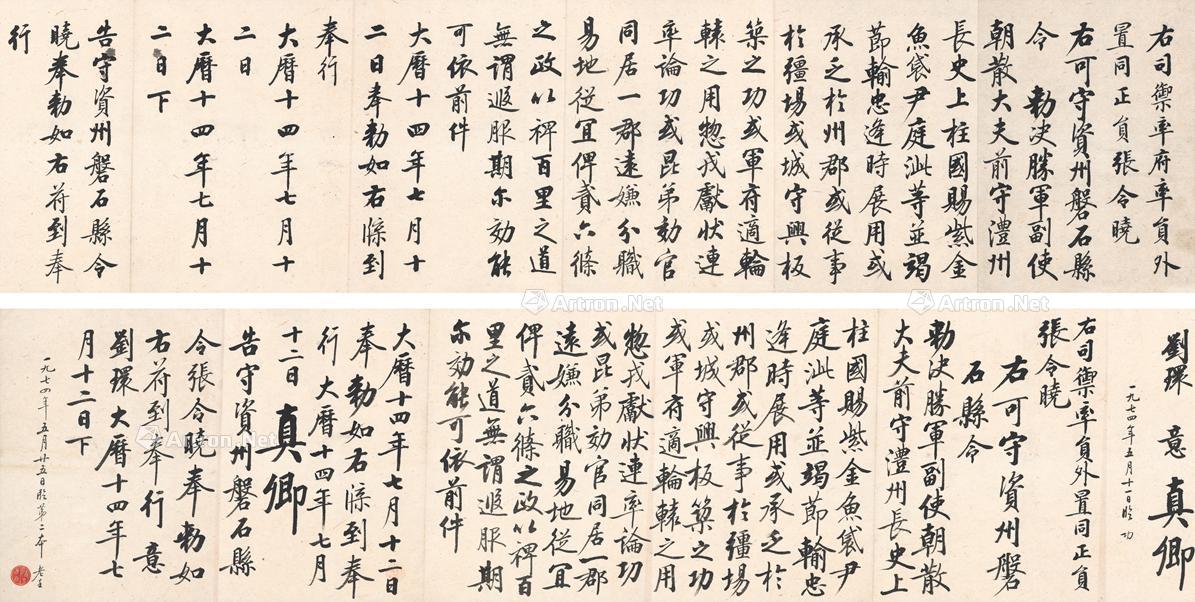 右司禦率府率負外
置同正負張令曉
右可守資州磐石縣
令　勅決勝軍副使
朝散大夫前守澧州
長史上柱國賜紫金
魚袋尹庭泚等並竭
莭輸忠逄時展用或
承乏於州郡或從事
於疆場或城守興板
築之功或軍府適輪
轅之用惣戎獻狀連
率論功或昆弟効官
同居一郡遠嫌分職
易地從冝俾貳六條
之政以裨百里之道
無謂遐服期尓効能
可依前件
大曆十四年七月十
二日奉勅如右牒到
奉行
大曆十四年七月十
二日
大曆十四年七月十
二日下
告守資州磐石縣令
曉奉勅如右荷到奉
行
劉環　意　真卿
一九七四年五月十一日臨功
右司禦率負外置同正負
張令曉
右可守資州磐
石縣令
勅決勝軍副使朝散
大夫前守澧州長史上
柱國賜紫金魚袋尹
庭泚等並竭莭輸忠
逄時展用或承乏於
州郡或從事於疆場
或城守興板築之功
或軍府適輪轅之用
惣戎獻狀連率論功
或昆弟効官同居一郡
遠嫌分職易地從冝
俾貳六條之政以裨百
里之道無謂遐服期
尓効能可依前件
大曆十四年七月十二日
奉勅如右牒到奉
行　大曆十四年七月
十二日　真卿
告守資州磐石縣
令張令曉奉勅如
右荷到奉行　意
劉環　大曆十四年七
月十二日下
一九七四年五月廿五日臨第二本
Artron.Net
Artron.Net
Artron.Net
Artron.Net
Artron.Net
Artron.Net